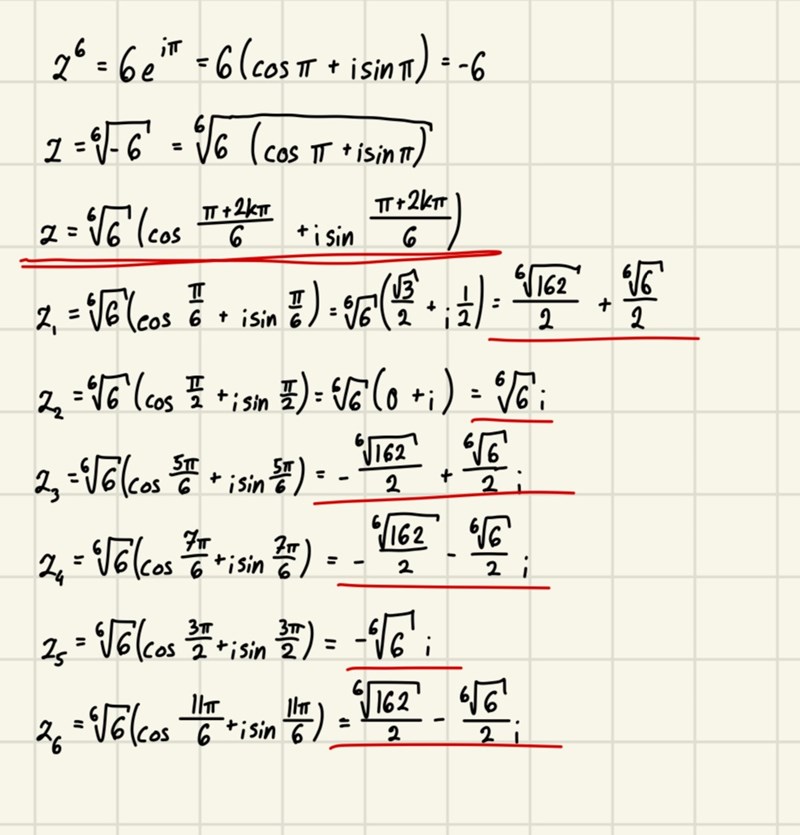 z⁶ = 6e^{iπ} = 6(cos π + i sin π) = -6
z = ⁶√(-6) = ⁶√(6 (cos π + i sin π))
z = ⁶√6 (cos (π+2kπ)/6 + i sin (π+2kπ)/6)
z₁ = ⁶√6 (cos π/6 + i sin π/6) = ⁶√6 (√3/2 + i 1/2) = ⁶√162/2 + ⁶√6/2
z₂ = ⁶√6 (cos π/2 + i sin π/2) = ⁶√6 (0 + i) = ⁶√6 i
z₃ = ⁶√6 (cos 5π/6 + i sin 5π/6) = - ⁶√162/2 + ⁶√6/2 i
z₄ = ⁶√6 (cos 7π/6 + i sin 7π/6) = - ⁶√162/2 - ⁶√6/2 i
z₅ = ⁶√6 (cos 3π/2 + i sin 3π/2) = - ⁶√6 i
z₆ = ⁶√6 (cos 11π/6 + i sin 11π/6) = ⁶√162/2 - ⁶√6/2 i